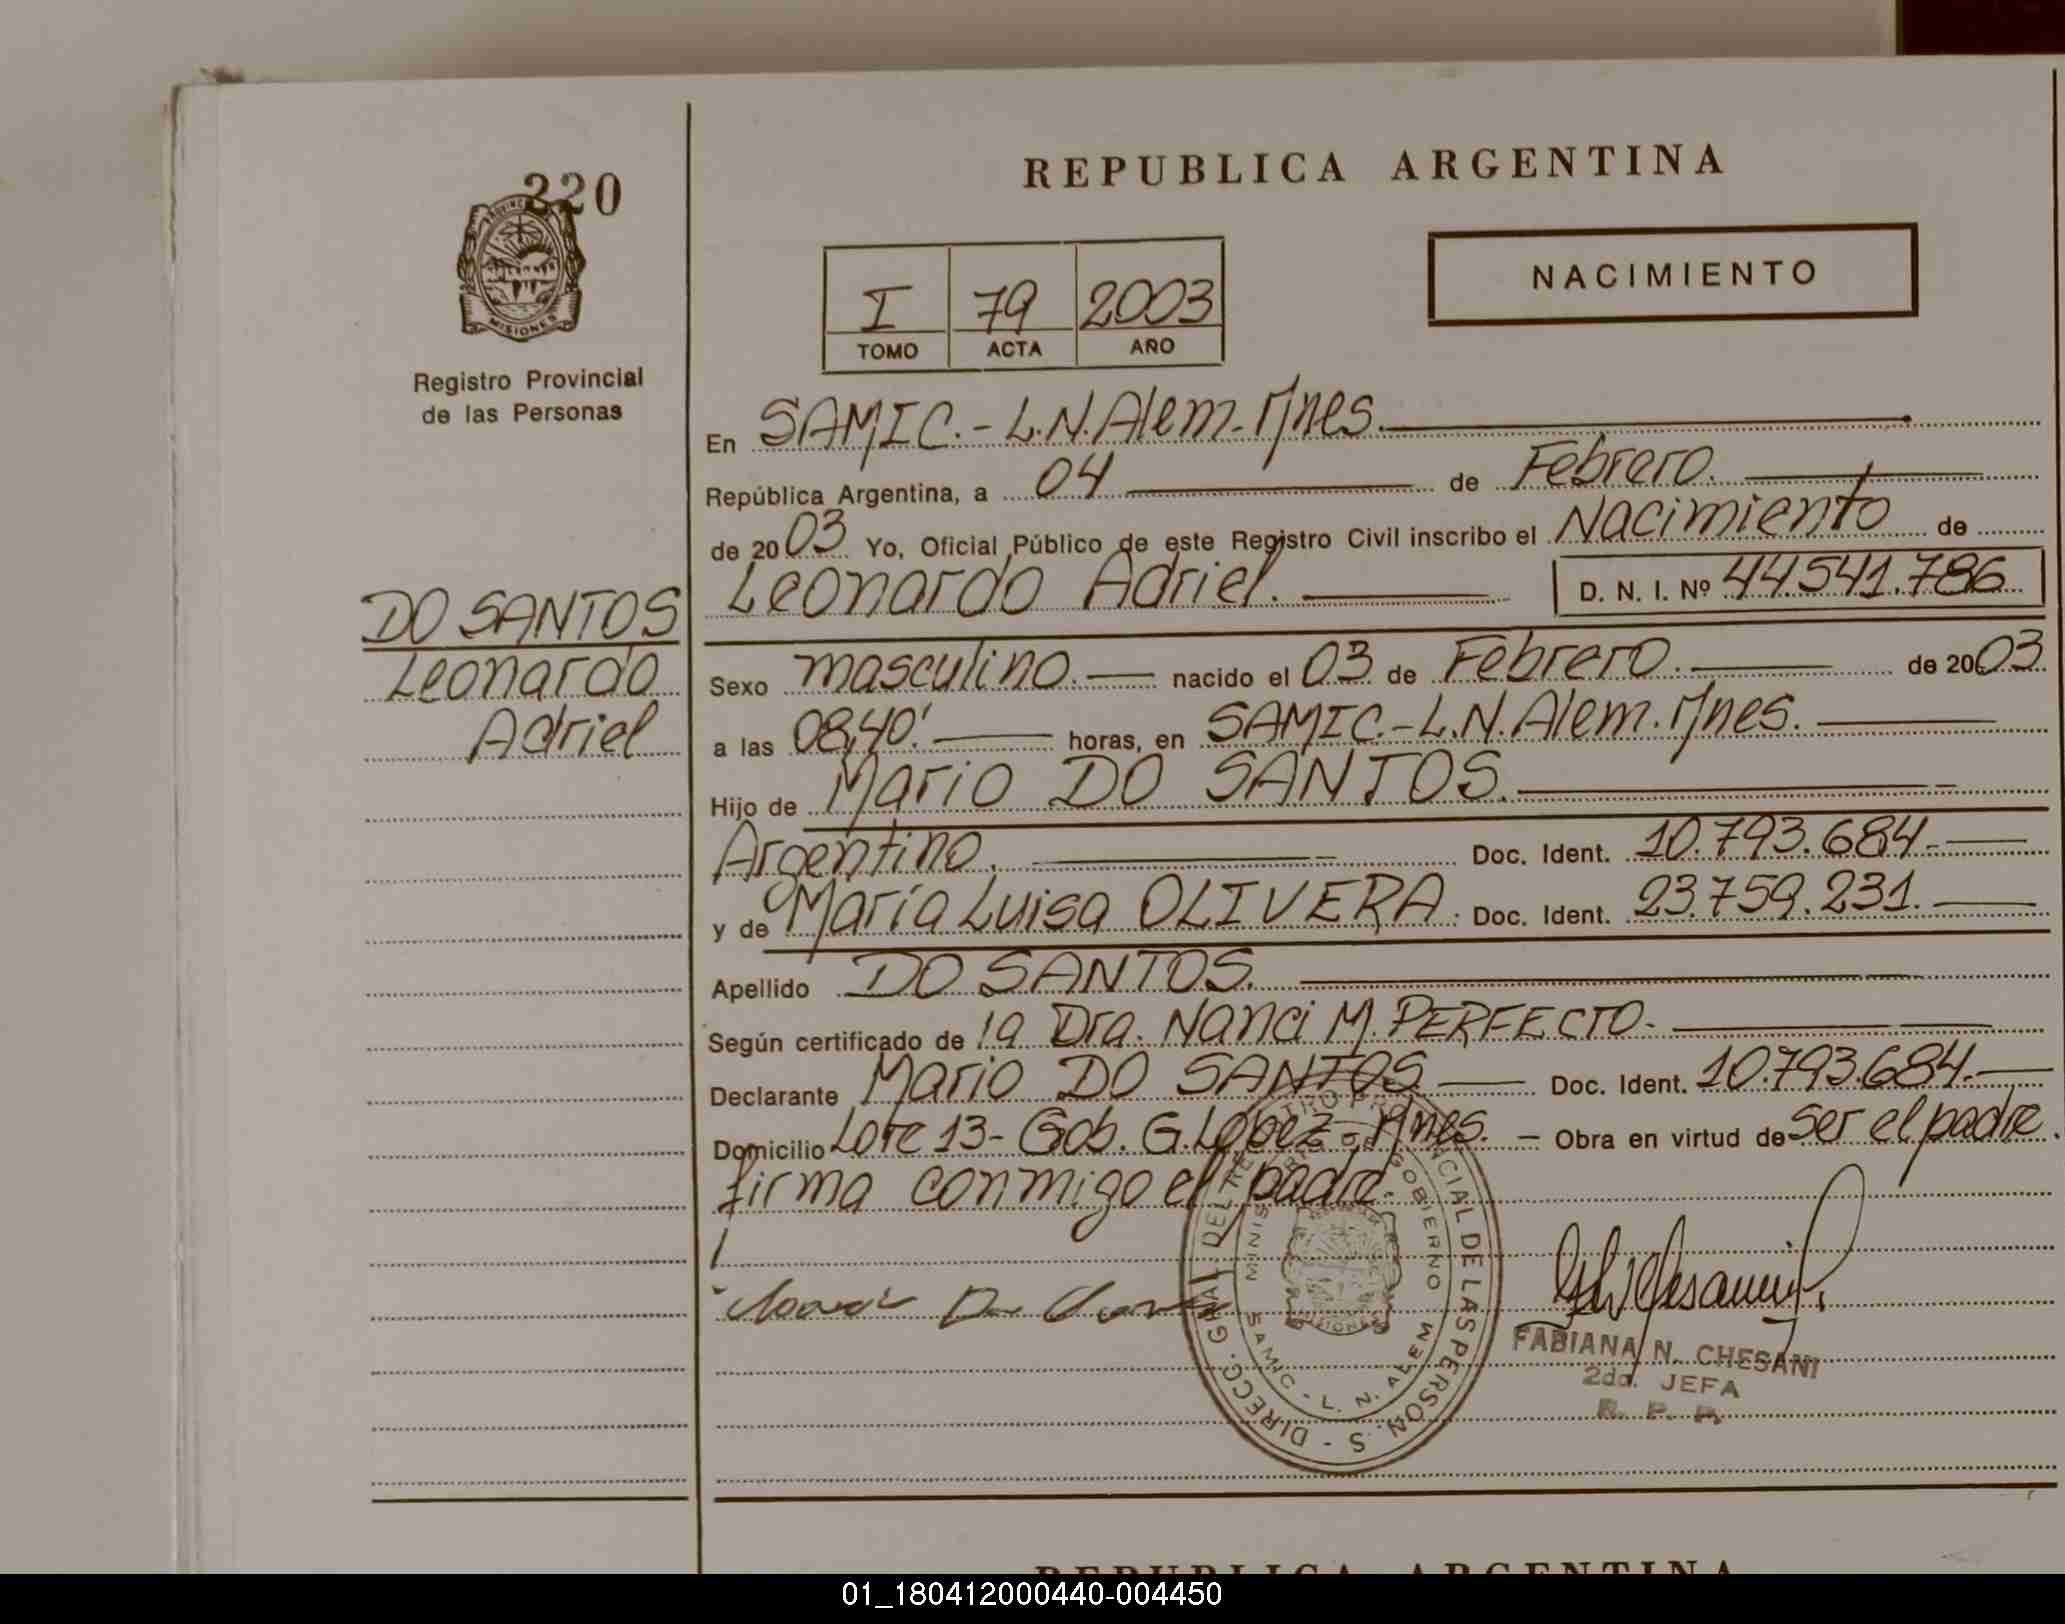 220
PROVINCIA
MISIONES
Registro Provincial
de las Personas
DO SANTOS
Leonardo
Adriel
REPUBLICA ARGENTINA
I 79 2003
TOMO ACTA AÑO
NACIMIENTO
En SAMIC.- L.N.Alem. Mnes.
República Argentina, a 04 de Febrero.
de 2003 Yo, Oficial Público de este Registro Civil inscribo el Nacimiento de
Leonardo Adriel. D. N. I. Nº 44.541.786
Sexo masculino. nacido el 03 de Febrero. de 2003
a las 08,40' horas, en SAMIC.-L.N.Alem. Mnes.
Hijo de Mario DO SANTOS.
Argentino. Doc. Ident. 10.793.684-
y de María Luisa OLIVERA. Doc. Ident. 23.759.231.
Apellido DO SANTOS.
Según certificado de la Dra. Nanci M. PERFECTO-
Declarante Mario DO SANTOS Doc. Ident. 10.793.684-
Domicilio Lote 13- Gob. G. Lopez- Mnes. - Obra en virtud de ser el padre.
firma conmigo el padre.
DIRECC. GRAL. DEL REGISTRO PROVINCIAL DE LAS PERSONAS
MINISTERIO DE GOBIERNO
SAMIC - L. N. ALEM
MISIONES
FABIANA N. CHESANI
2da. JEFA
R. P. P.
REPUBLICA ARGENTINA
01_180412000440-004450